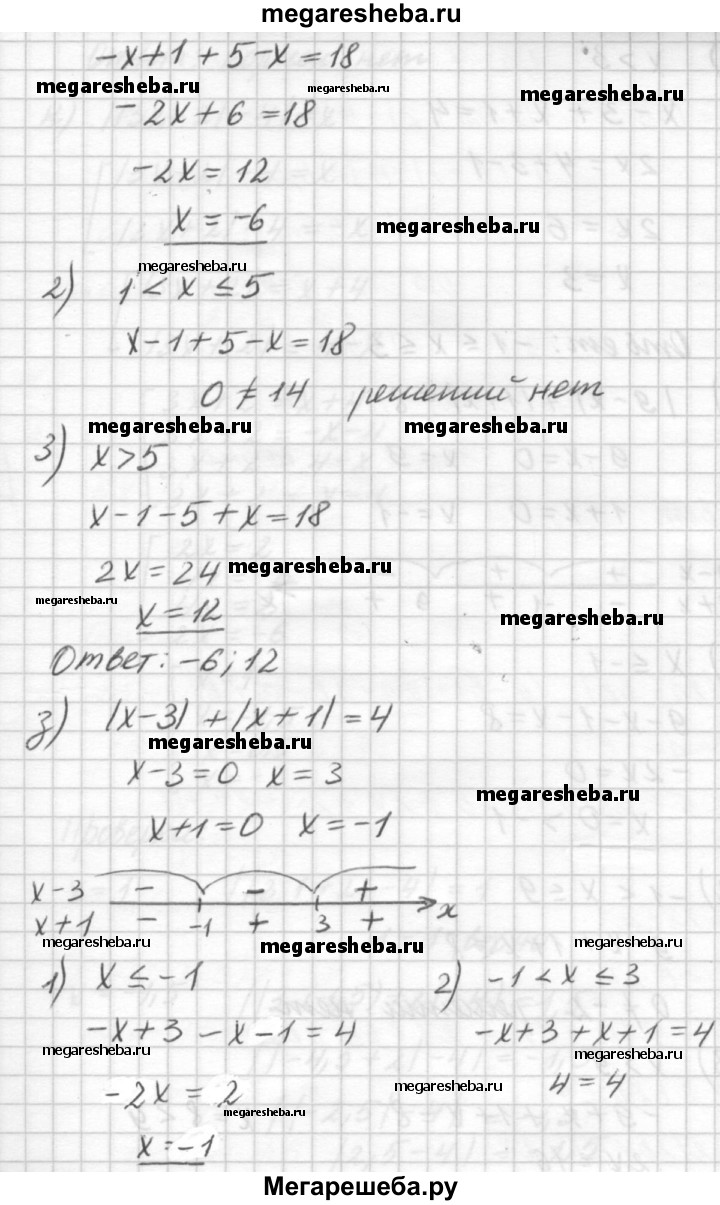 megaresheba.ru
-x+1+5-x=18
megaresheba.ru megaresheba.ru megaresheba.ru
-2x+6=18
-2x=12
x=-6 megaresheba.ru
megaresheba.ru
2) 1<x≤5
x-1+5-x=18
0≠14 решений нет
megaresheba.ru megaresheba.ru
3) x>5
x-1-5+x=18
2x=24 megaresheba.ru
megaresheba.ru x=12 megaresheba.ru
Ответ: -6; 12
з) |x-3|+|x+1|=4
megaresheba.ru
x-3=0 x=3
megaresheba.ru
x+1=0 x=-1
x-3 - - +
x+1 - -1 + 3 + x
megaresheba.ru megaresheba.ru megaresheba.ru
1) x≤-1
-x+3-x-1=4
megaresheba.ru
-2x=2
megaresheba.ru
x=-1
2) -1<x≤3
-x+3+x+1=4
megaresheba.ru
4=4
megaresheba.ru
Мегарешеба.ру